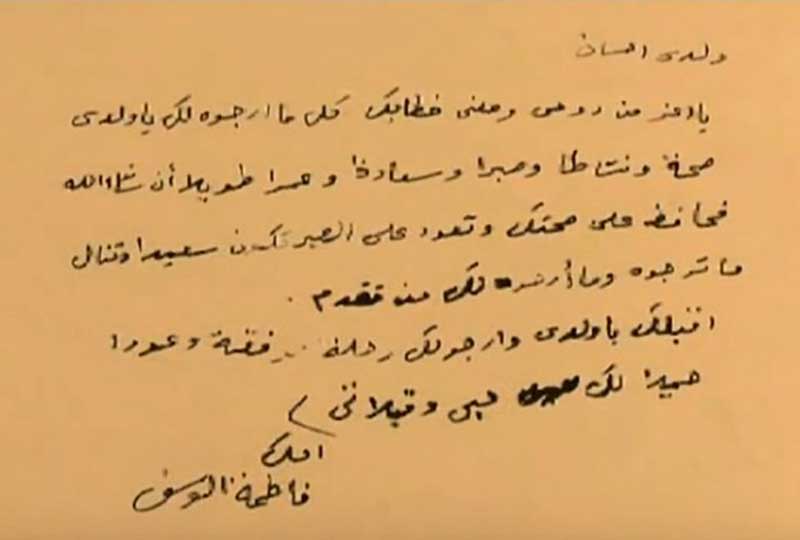 ولدى احسان
يا اعز من روحى وصلنى خطابك كل ما ارجوه لك يا ولدى
صحة ونشاطا وصبرا وسعادة وعمرا طويلا أن شاء الله
فحافظ على صحتك وتعود على الصبر تكون سعيدا وتنال
ما ترجوه وما أرجوه لك من تقدم .
اقبلك يا ولدى وارجو لك رحلة موفقة وعودا
حميدا لك حبى وقبلاتى /
امك
فاطمة اليوسف